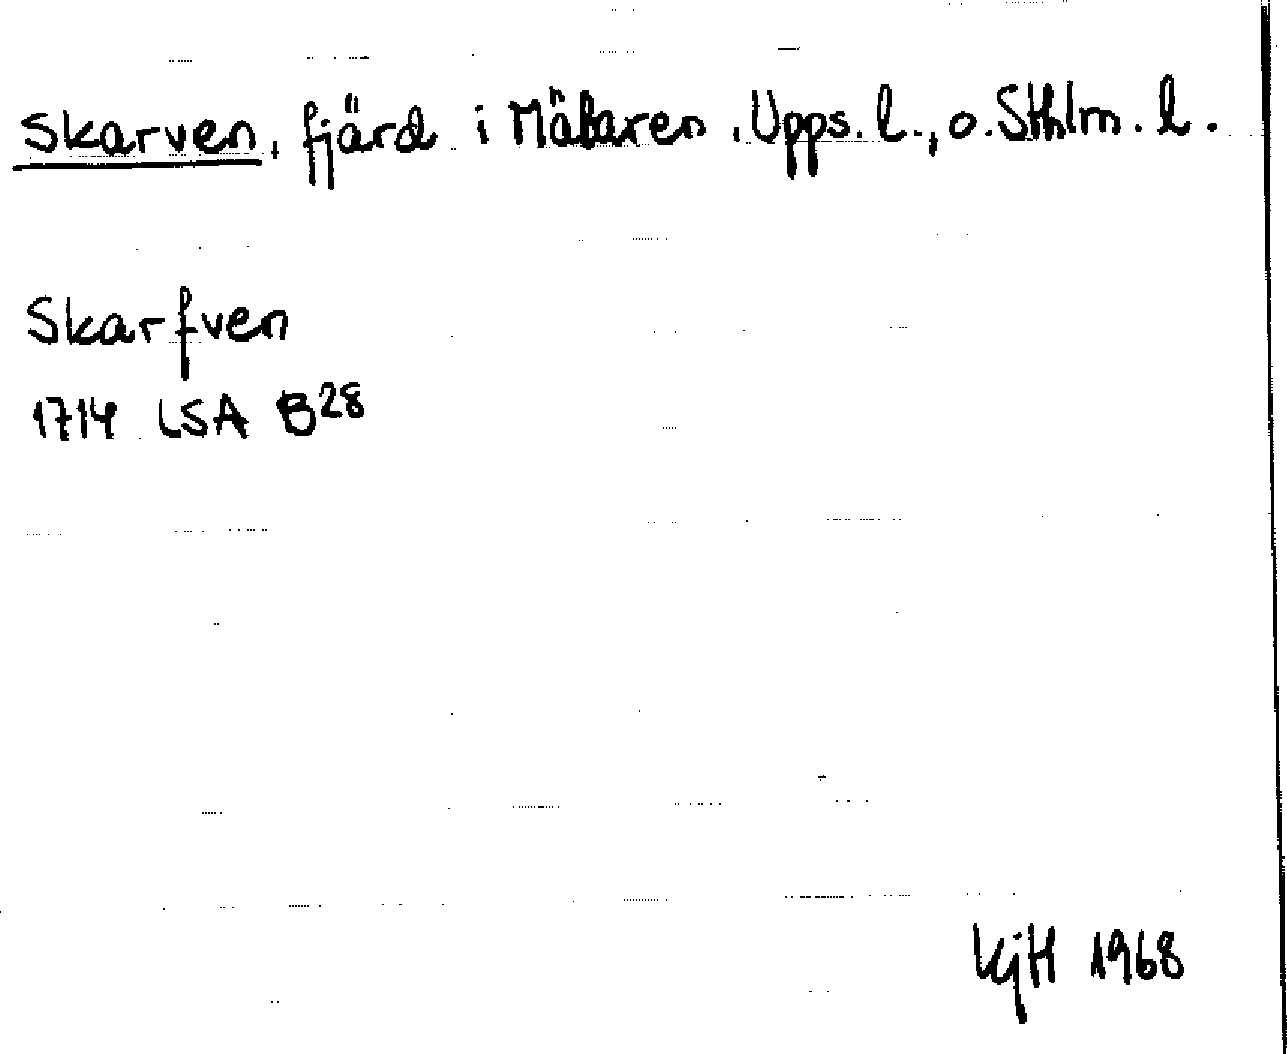 Skarven, fjärd i Mälaren, Upps. l., o. Sthlm. l.
Skarfven
1714 LSA B28
KjH 1968